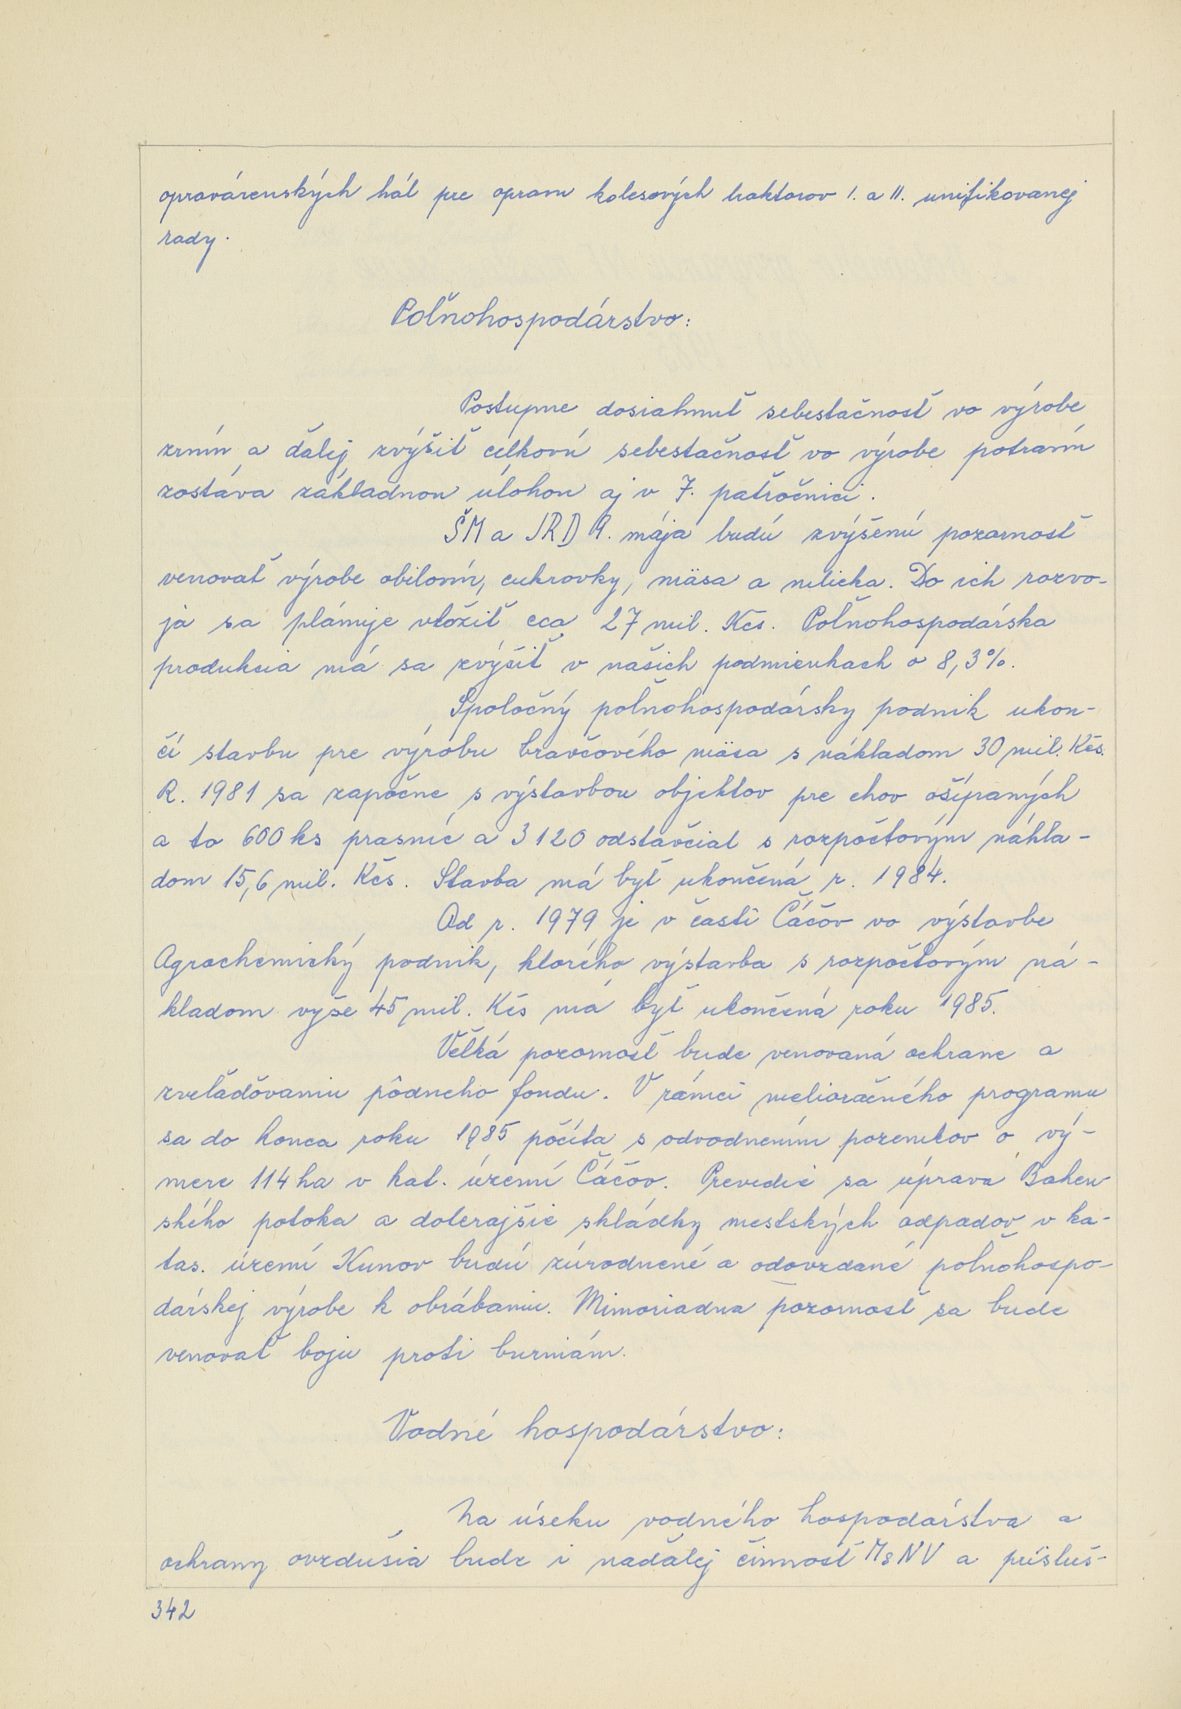 opravárenských hál pre opravu kolesových traktorov I. a II. unifikovanej
rady.
Poľnohospodárstvo:
Postupne dosiahnuť sebestačnosť vo výrobe
zrnín a ďalej zvýšiť celkovú sebestačnosť vo výrobe potravín
zostáva základnou úlohou aj v 7. päťročnici.
ŠM a JRD 9. mája budú zvýšenú pozornosť
venovať výrobe obilovín, cukrovky, mäsa a mlieka. Do ich rozvo-
ja sa plánuje vložiť cca 27 mil. Kčs. Poľnohospodárska
produkcia má sa zvýšiť v našich podmienkach o 8,3%.
Spoločný poľnohospodársky podnik ukon-
čí stavbu pre výrobu bravčového mäsa s nákladom 30 mil. Kčs.
R. 1981 sa započne s výstavbou objektov pre chov ošípaných
a to 600 ks prasníc a 3120 odstavčiat s rozpočtovým nákla-
dom 15,6 mil. Kčs. Stavba má byť ukončená r. 1984.
Od r. 1979 je v časti Čáčov vo výstavbe
Agrochemický podnik, ktorého výstavba s rozpočtovým ná-
kladom vyše 45 mil. Kčs má byť ukončená roku 1985.
Veľká pozornosť bude venovaná ochrane a
zveľaďovaniu pôdneho fondu. V rámci melioračného programu
sa do konca roku 1985 počíta s odvodnením pozemkov o vý-
mere 114 ha v kat. území Čáčov. Prevedie sa úprava Bahen
ského potoka a doterajšie skládky mestských odpadov v ka-
tas. území Kunov budú zúrodnené a odovzdané poľnohospo-
dárskej výrobe k obrábaniu. Mimoriadna pozornosť sa bude
venovať boju proti burinám.
Vodné hospodárstvo:
Na úseku vodného hospodárstva a
ochrany ovzdušia bude i naďalej činnosť MsNV a prísluš-
342